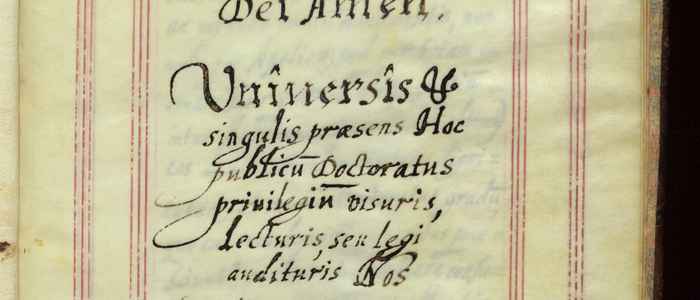 Dei Amen.
Vniuersis &
singulis præsens Hoc
publicū Doctoratus
priuilegiū visuris,
lecturis, seu legi
audituris Nos